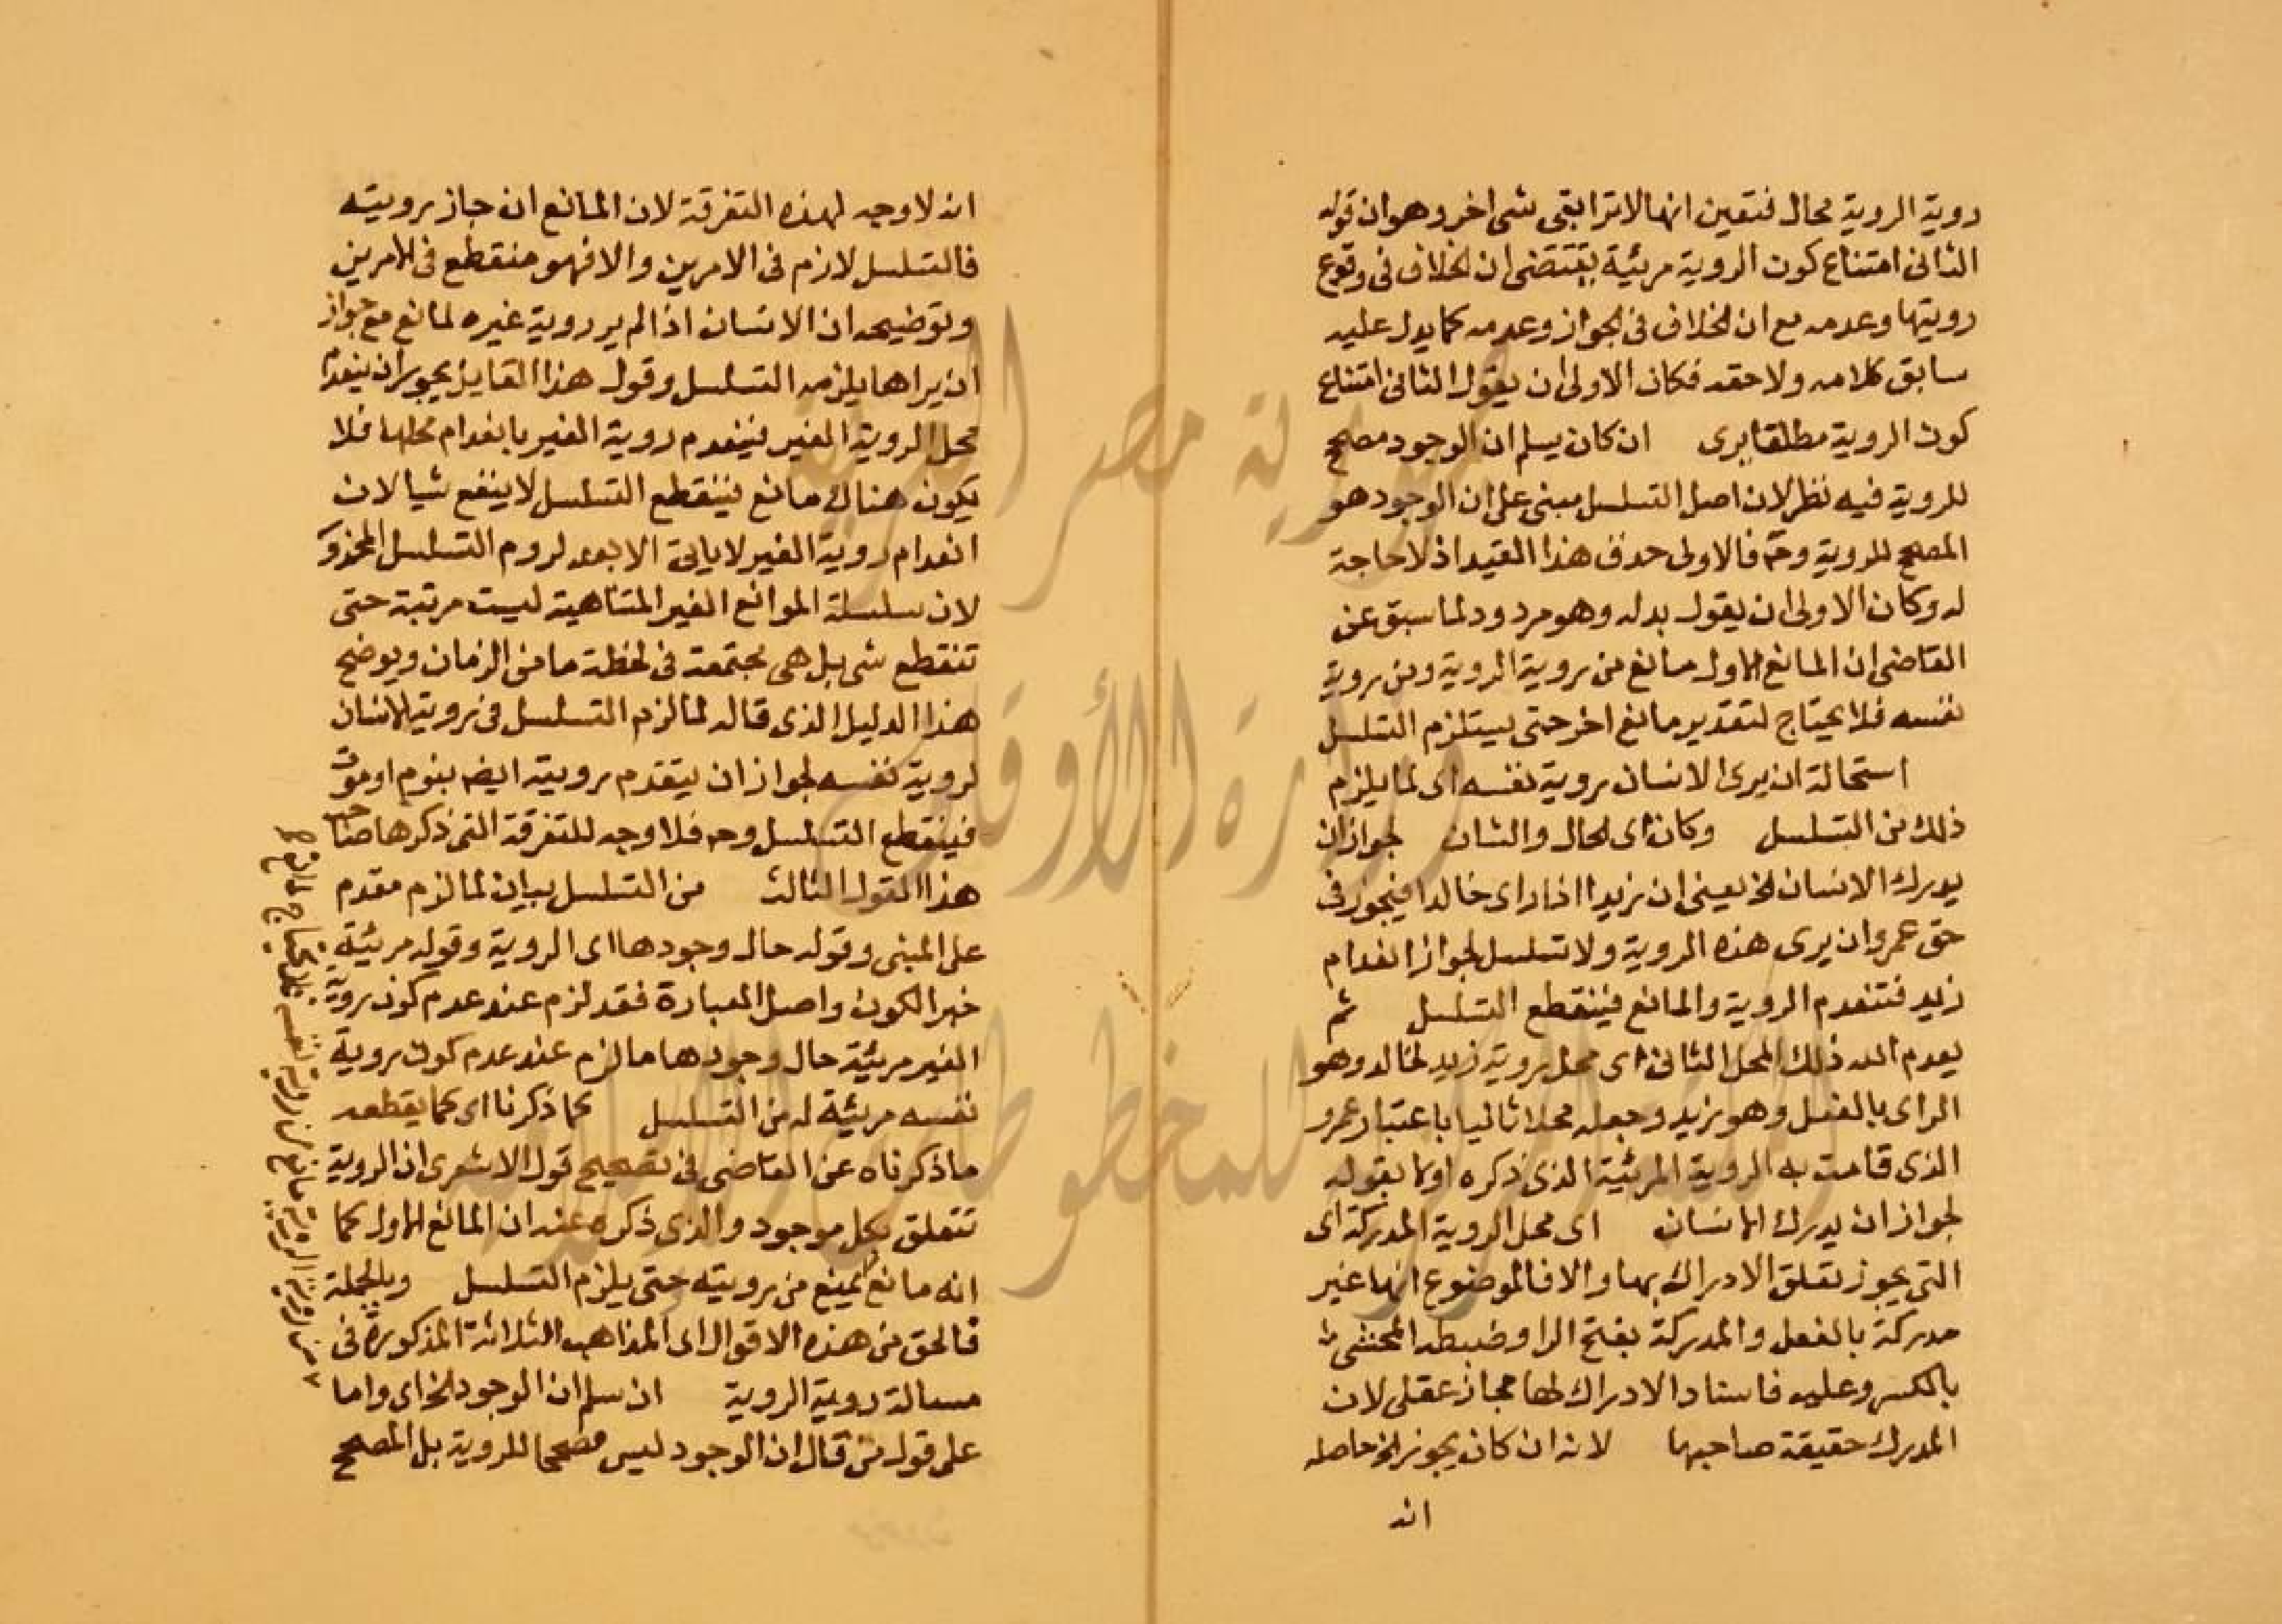 روية الروية محال فتعين انها لا ترا بقى شى اخر وهو ان قوله
الثانى امتناع كون الروية مريئة يقتضى ان الخلاف فى وقوع
رويتها وعدمه مع ان الخلاف فى الجواز وعدمه كما يدل عليه
سابق كلامه ولاحقه فكان الاولى ان يقول الثانى امتناع
كون الروية مطلقا يرى ان كان يسلم ان الوجود مصحح
للروية فيه نظر لان اصل التسلسل مبنى على ان الوجود هو
المصحح للروية وح فالاولى حذف هذا القيد اذ لا حاجة
له وكان الاولى ان يقول بدله وهو مردود لما سبق عن
القاضى ان المانع الاول مانع من روية الروية ومن روية
نفسه فلا يحتاج لتقدير مانع اخر حتى يستلزم التسلسل
استحالة ان يرى الانسان روية نفسه اى لما يلزم
ذلك من التسلسل وكان اى الحال والشان جواز ان
يدرك الانسان الخ يعنى ان زيدا اذا راى خالدا فيجوز فى
حق عمرو ان يرى هذه الروية ولا تسلسل لجواز انعدام
زيد فتنعدم الروية والمانع فينقطع التسلسل ثم
يعدم الله ذلك المحل الثانى اى محل روية زيد لخالد وهو
الراى بالفعل وهو زيد وجعله محلا ثانيا باعتبار عمرو
الذى قامت به الروية المرئية الذى ذكره اولا بقوله
لجواز ان يدرك الانسان اى محل الروية المدركة اى
التى يجوز تعلق الادراك بها والا فالموضوع انها غير
مدركة بالفعل والمدركة بفتح الرا وضبطه المحشى
بالكسر وعليه فاسناد الادراك لها مجاز عقلى لان
المدرك حقيقة صاحبها لانه ان كان يجوز الخ حاصله
انه
انه لا وجه لهذه التفرقة لان المانع ان جاز رويته
فالتسلسل لازم فى الامرين والا فهو منقطع فى الامرين
وتوضيحه ان الانسان اذا لم ير روية غيره لمانع مع جواز
ان يراها يلزمه التسلسل وقول هذا القايل يجوز ان ينعدم
محل الروية الغير فينعدم روية الغير بانعدام محلها فلا
يكون هناك مانع فينقطع التسلسل لا ينفع شيا لان
انعدام روية الغير لا ياتى الا بعد لروم التسلسل المحذور
لان سلسلة الموانع الغير المتناهية ليست مرتبة حتى
تنقطع شى بل هى مجتمعة فى لحظة ما من الزمان ويوضح
هذا الدليل الذى قاله لما لزم التسلسل فى روية الانسان
لروية نفسه لجواز ان يتقدم رويته ايضا بنوم او موت
فينقطع التسلسل وح فلا وجه للتفرقة التى ذكرها صاحب
هذا القول الثالث من التسلسل بيان لما لزم مقدم
على المبنى وقوله حال وجودها اى الروية وقوله مريئة
خبر الكون واصل العبارة فقد لزم عند عدم كون روية
الغير مريئة حال وجودها ما لزم عند عدم كون روية
نفسه مريئة له من التسلسل كما ذكرنا اى كما يقطعه
ما ذكرناه عن القاضى فى تصحيح قول الاشعرى ان الروية
تتعلق بكل موجود والذى ذكره عنه ان المانع الاول كما
انه مانع يمنع من رويته حتى يلزم التسلسل وبالجملة
فالحق من هذه الاقوال اى المذاهب الثلاثة المذكورة فى
مسالة روية الروية ان سلم ان الوجود الخ اى واما
على قول من قال ان الوجود ليس مصححا للروية بل المصحح